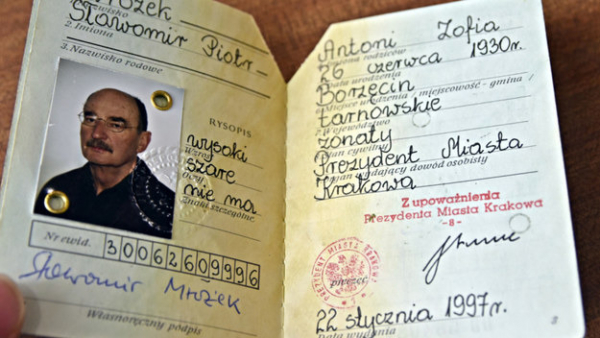 rożek
Sławomir Piotr
2. Imiona
3. Nazwisko rodowe
RYSOPIS
wysoki
szare
nie ma
Znaki szczególne
Nr ewid. 30062609996
Sławomir Mrożek
Własnoręczny podpis
Antoni Zofia
rodziców
26 czerwca 1930r.
urodzenia
Borzęcin
urodzenia / miejscowość - gmina /
tarnowskie
Województwo
żonaty
cywilny
Prezydent Miasta
wydający dowód osobisty
Krakowa
Z upoważnienia
Prezydenta Miasta Krakowa
-8-
PREZYDENT MIASTA KRAKOWA
22 stycznia 1997r.
Data wydania
3